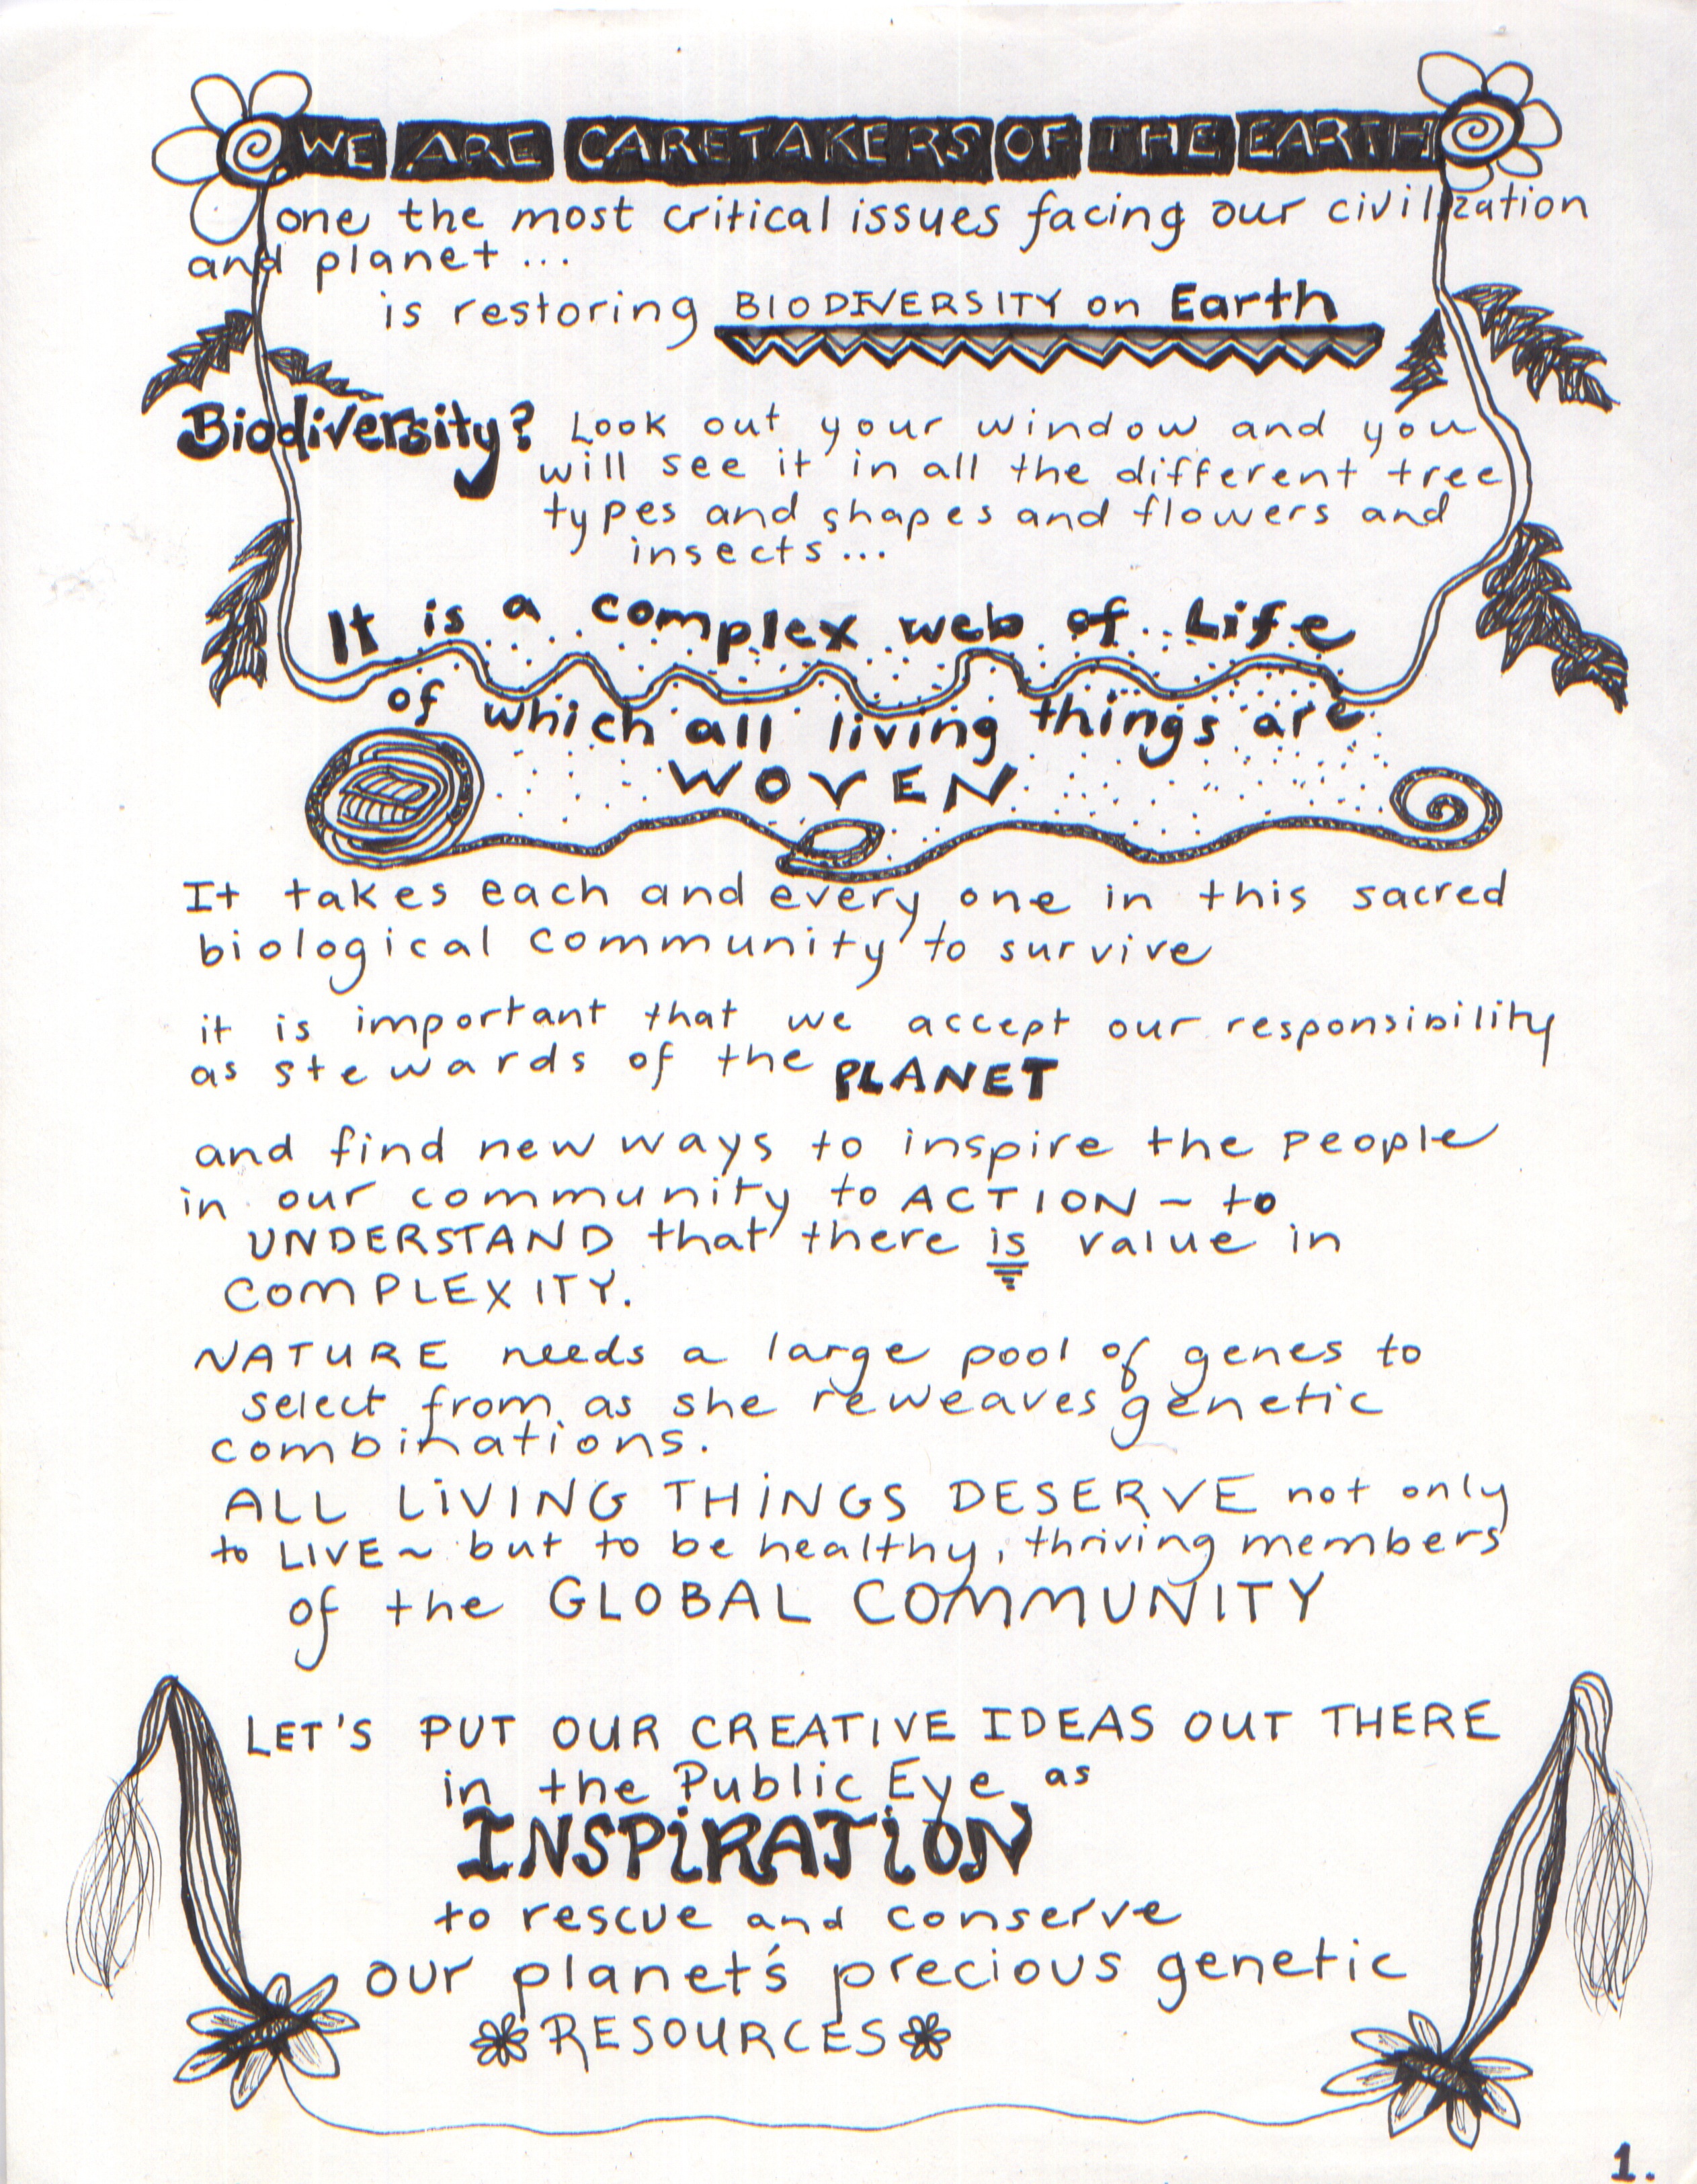 WE ARE CARETAKERS OF THE EARTH
one the most critical issues facing our civilization
and planet ...
is restoring BIODIVERSITY on Earth
Biodiversity? Look out your window and you
will see it in all the different tree
types and shapes and flowers and
insects...
It is a complex web of Life
of which all living things are
WOVEN
It takes each and every one in this sacred
biological community to survive
it is important that we accept our responsibility
as stewards of the PLANET
and find new ways to inspire the people
in our community to ACTION ~ to
UNDERSTAND that there is value in
COMPLEXITY.
NATURE needs a large pool of genes to
select from as she reweaves genetic
combinations.
ALL LiVING THiNGS DESERVE not only
to LIVE ~ but to be healthy, thriving members
of the GLOBAL COMMUNITY
LET'S PUT OUR CREATIVE IDEAS OUT THERE
in the Public Eye as
INSPiRATiON
to rescue and conserve
our planet's precious genetic
RESOURCES
1.